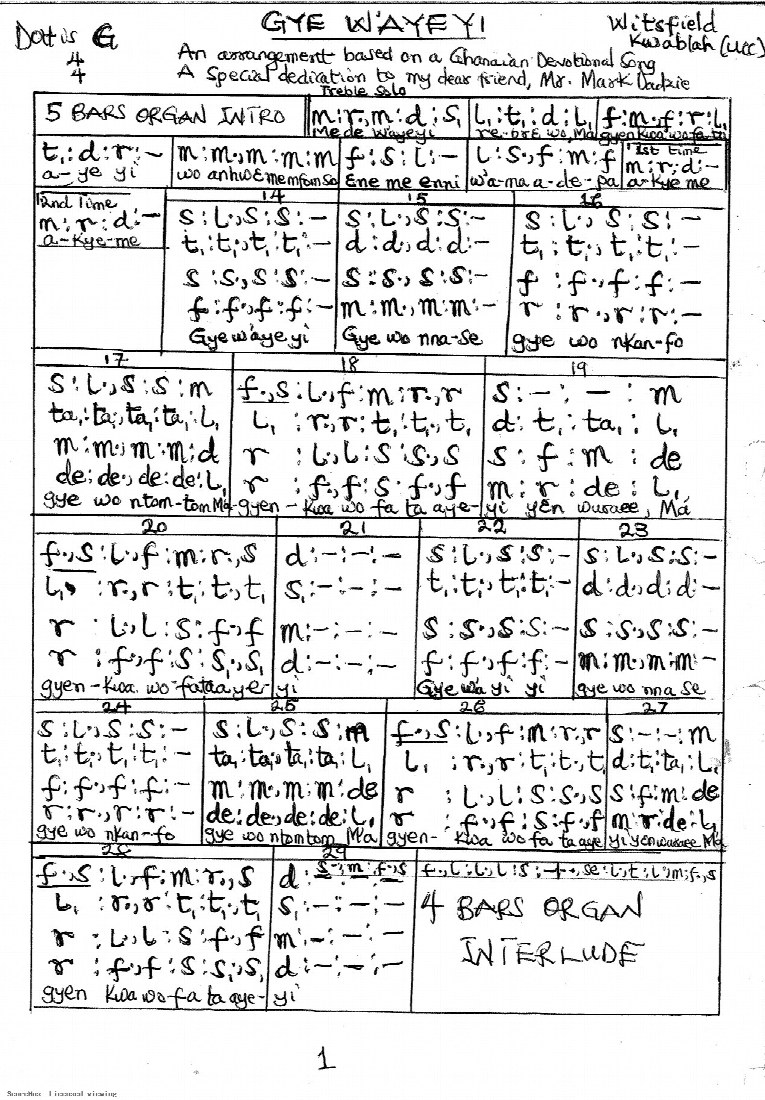 GYE W'AYEYI
Doh is G
4
4
Witsfield
Kwablah (UCC)
An arrangement based on a Ghanaian Devotional Song
A Special dedication to my dear friend, Mr. Mark Dadzie
Treble Solo
5 BARS ORGAN INTRO
m:r.,m:d:s, | l,:t,:d:l, | f:m.,f:r:l,
Me de wayeyi | re-brɛ wo, Ma | gyen Kwa wo fa ta
t,:d:r:- | m:m.,m:m:m | f:s:l:- | l:s.,f:m:f | 1st time
m:r:d:-
a-ye yi | wo anhwɛ me mfom so | Ene me enni | w'a-ma a-de-pa | a-kye me
2nd Time | 14 | 15 | 16
m:r:d:- | s:l.,s:s:- | s:l.,s:s:- | s:l.,s:s:-
a-kye-me | t,:t,.,t,:t,:- | d:d.,d:d:- | t,:t,.,t,:t,:-
s:s.,s:s:- | s:s.,s:s:- | f:f.,f:f:-
f:f.,f:f:- | m:m.,m:m:- | r:r.,r:r:-
Gye w'aye yi | Gye wo nna-se | gye wo nkan-fo
17 | 18 | 19
s:l.,s:s:m | f.,s:l.,f:m:r.,r | s:-:-:m
ta,:ta,.,ta,:ta,:l, | l,:r.,r:t,:t,.,t, | d:t,:ta,:l,
m:m.,m:m:d | r:l.,l:s:s.,s | s:f:m:de
de:de.,de:de:l, | r:f.,f:s:f.,f | m:r:de:l,
gye wo ntom-tom Ma- | gyen-Kwa wo fa ta aye- | yi yɛn wuraee, Ma
20 | 21 | 22 | 23
f.,s:l.,f:m:r.,s | d:-:-:- | s:l.,s:s:- | s:l.,s:s:-
l,:r.,r:t,:t,.,t, | s,:-:-:- | t,:t,.,t,:t,:- | d:d.,d:d:-
r:l.,l:s:f.,f | m:-:-:- | s:s.,s:s:- | s:s.,s:s:-
r:f.,f:s:s,.,s, | d:-:-:- | f:f.,f:f:- | m:m.,m:m:-
gyen-Kwa wo fa taa yer | yi | Gye wa yi yi | gye wo nna se
24 | 25 | 26 | 27
s:l.,s:s:- | s:l.,s:s:m | f.,s:l.,f:m:r.,r | s:-:-:m
t,:t,.,t,:t,:- | ta,:ta,.,ta,:ta,:l, | l,:r.,r:t,:t,.,t, | d:t,:ta,:l,
f:f.,f:f:- | m:m.,m:m:de | r:l.,l:s:s.,s | s:f:m:de
r:r.,r:r:- | de:de.,de:de:l, | r:f.,f:s:f.,f | m:r:de:l,
gye wo nkan-fo | gye wo ntom tom Ma | gyen-Kwa wo fa ta aye | yi yɛn wuraee Ma
28 | 29
f.,s:l.,f:m:r.,s | d:s.,m:f.,s
l,:r.,r:t,:t,.,t, | s,:-:-:- | 4 BARS ORGAN
r:l.,l:s:f.,f | m:-:-:- | INTERLUDE
r:f.,f:s:s,.,s, | d:-:-:-
gyen Kwa wo-fa ta aye- | yi
1
licensed viewing